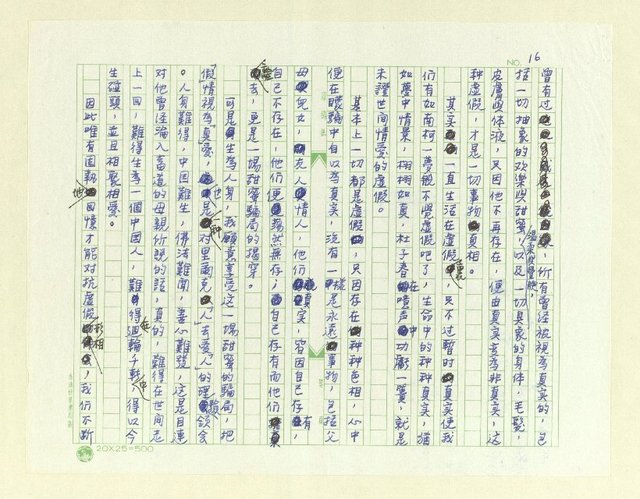 NO. 16
曾有過，所有曾經被視為真實的，包
括一切抽象的歡樂與甜蜜、以及一切具象的身体，毛髮，
皮膚與体液，只因他不再存在，便由真實去為非真實，這
種虛假，才是一切事物真相。
其實一直生活在虛假，只不過暫時真實使我
仍有如南柯一夢般不覺虛假吧了，生命中的种种真實，猶
如夢中情景，栩栩如真，杜子春在噴声中功虧一簣，就是
未證世間情愛的虛假。
其本上一切都是虛假，只因存在种种色相，心中
便在矇騙中自以為真實，沒有一樣是永遠事物，包括父
母兒女，友人與情人，他們真實，皆因自己存有，
自己不存在，他們便無存；自己存有而他們
去，更是一場甜蜜騙局的揭穿。
可是生為人身，我願意享受這一場甜蜜的騙局，把
假情視為真愛，是一种对里爾克「人去愛人」的理
。人身難得，中国難生，佛法難聞，善心難發，這是目連
对他曾經淪入畜道的母親所說的話，真的，難得在世間走
上一回，難得生爲一個中国人，難得在迴輪千轉中得以今
生碰頭，並且相聚相愛。
因此唯有固執地回憶才能对抗虛假形相，我仍不斷
20X25=500